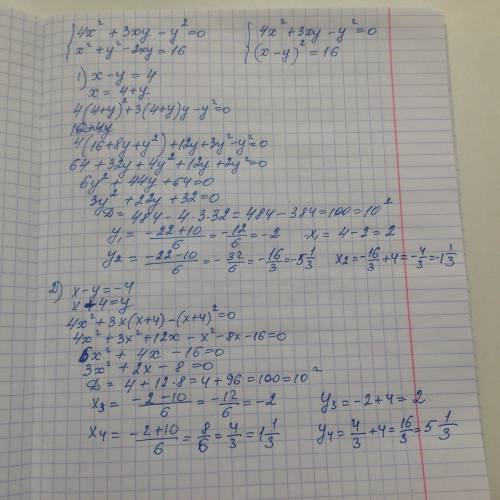 { 4x² + 3xy - y² = 0    { 4x² + 3xy - y² = 0
{ x² + y² - 2xy = 16    { (x - y)² = 16
1) x - y = 4
x = 4 + y
4(4+y)² + 3(4+y)y - y² = 0
4(16 + 8y + y²) + 12y + 3y² - y² = 0
64 + 32y + 4y² + 12y + 2y² = 0
6y² + 44y + 64 = 0
3y² + 22y + 32 = 0
D = 484 - 4·3·32 = 484 - 384 = 100 = 10²
y₁ = (-22+10)/6 = -12/6 = -2    x₁ = 4 - 2 = 2
y₂ = (-22-10)/6 = -32/6 = -16/3 = -5 1/3    x₂ = -16/3 + 4 = -4/3 = -1 1/3
2) x - y = -4
x + 4 = y
4x² + 3x(x+4) - (x+4)² = 0
4x² + 3x² + 12x - x² - 8x - 16 = 0
6x² + 4x - 16 = 0
3x² + 2x - 8 = 0
D = 4 + 12·8 = 4 + 96 = 100 = 10²
x₃ = (-2-10)/6 = -12/6 = -2    y₃ = -2 + 4 = 2
x₄ = (-2+10)/6 = 8/6 = 4/3 = 1 1/3    y₄ = 4/3 + 4 = 16/3 = 5 1/3